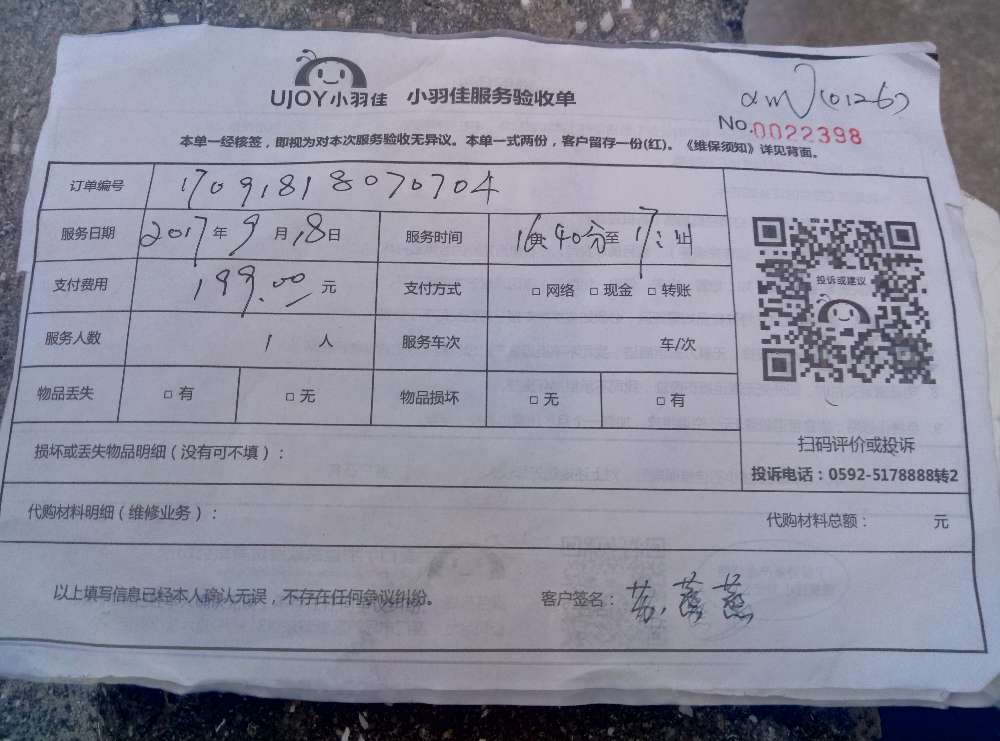 UJOY小羽佳 小羽佳服务验收单
(0126)
No.0022398
本单一经核签，即视为对本次服务验收无异议。本单一式两份，客户留存一份(红)。《维保须知》详见背面。
订单编号 1709181807 0704
服务日期 2017年9月18日 服务时间 16时40分至17:
投诉或建议
支付费用 199.00元 支付方式 □网络 □现金 □转账
服务人数 1人 服务车次 车/次
物品丢失 □有 □无 物品损坏 □无 □有
扫码评价或投诉
损坏或丢失物品明细（没有可不填）：
投诉电话：0592-5178888转2
代购材料明细（维修业务）： 代购材料总额： 元
以上填写信息已经本人确认无误，不存在任何争议纠纷。 客户签名：